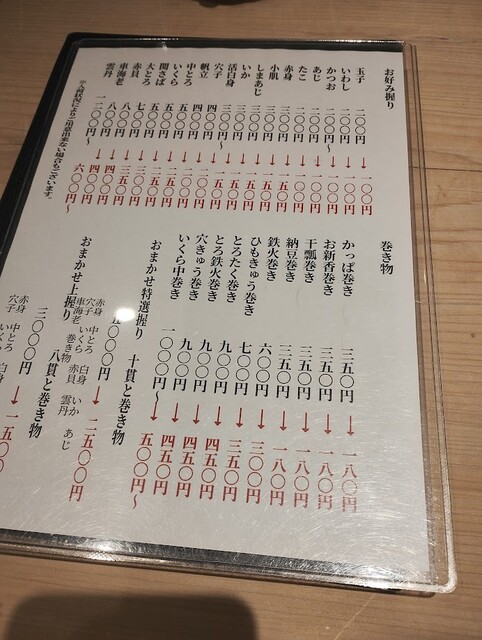 お好み握り
玉子 二〇〇円→一〇〇円
いわし 二〇〇円→一〇〇円
かつお 二〇〇円〜→一〇〇円
あじ 二〇〇円→一〇〇円
たこ 二〇〇円→一〇〇円
赤身 三〇〇円→一五〇円
小肌 三〇〇円→一五〇円
しまあじ 三〇〇円〜→一五〇円
いか 三〇〇円→一五〇円
活白身 三〇〇円→一五〇円
穴子
帆立 四〇〇円
中とろ 五〇〇円→二五〇円
いくら 五〇〇円→二五〇円
関さば 五〇〇円→二五〇円
大とろ
赤貝 七〇〇円→三五〇円
車海老 八〇〇円→四〇〇円
雲丹 一二〇〇円〜→六〇〇円〜
※入荷状況により ご用意出来ない場合もございます。
巻き物
かっぱ巻き 三五〇円→一八〇円
お新香巻き 三五〇円→一八〇円
干瓢巻き 三五〇円→一八〇円
納豆巻き 三五〇円→一八〇円
鉄火巻き 六〇〇円→三〇〇円
ひもきゅう巻き 七〇〇円→三五〇円
とろたく巻き 九〇〇円→四五〇円
とろ鉄火巻き 九〇〇円→四五〇円
穴きゅう巻き 九〇〇円→四五〇円
いくら中巻き 一〇〇〇円〜→五〇〇円〜
おまかせ特選握り 十貫と巻き物
〇〇〇円→二五〇〇円
赤身 中とろ 白身 いか あじ
穴子 いくら 赤貝 雲丹
車海老 巻き物
おまかせ上握り 八貫と巻き物
三〇〇〇円→一五〇〇
赤身 中とろ 白身
穴子 いくら